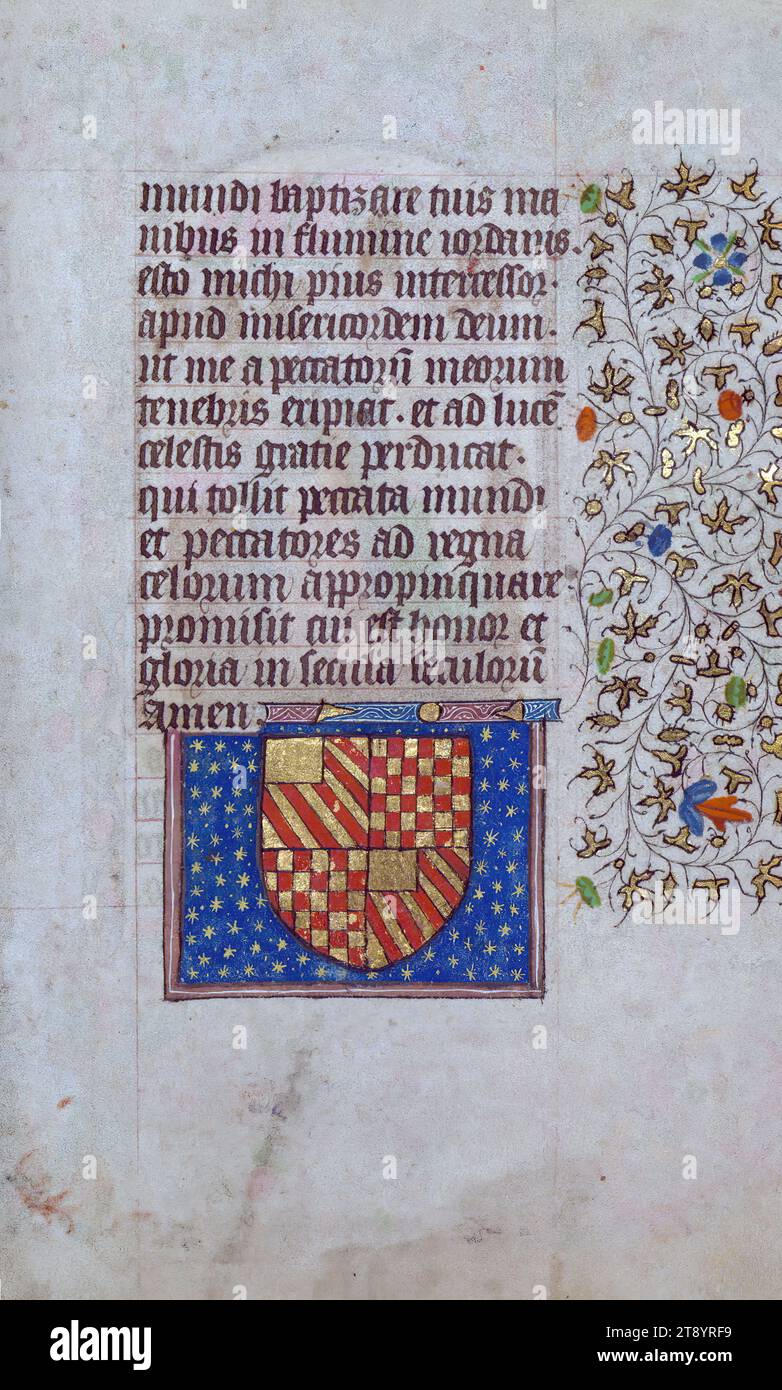 mundi baptizare tuis ma
nibus in flumine iordanis.
esto michi pius intercessor.
apud misericordem deum.
ut me a peccatorū meorum
tenebris eripiat. et ad lucē
celestis gratie perducat.
qui tollit peccata mundi
et peccatores ad regna
celorum appropinquare
promisit cui est honor et
gloria in secula seculorū
Amen.
a
alamy
alamy
Image ID: 2T8YRF9
www.alamy.com